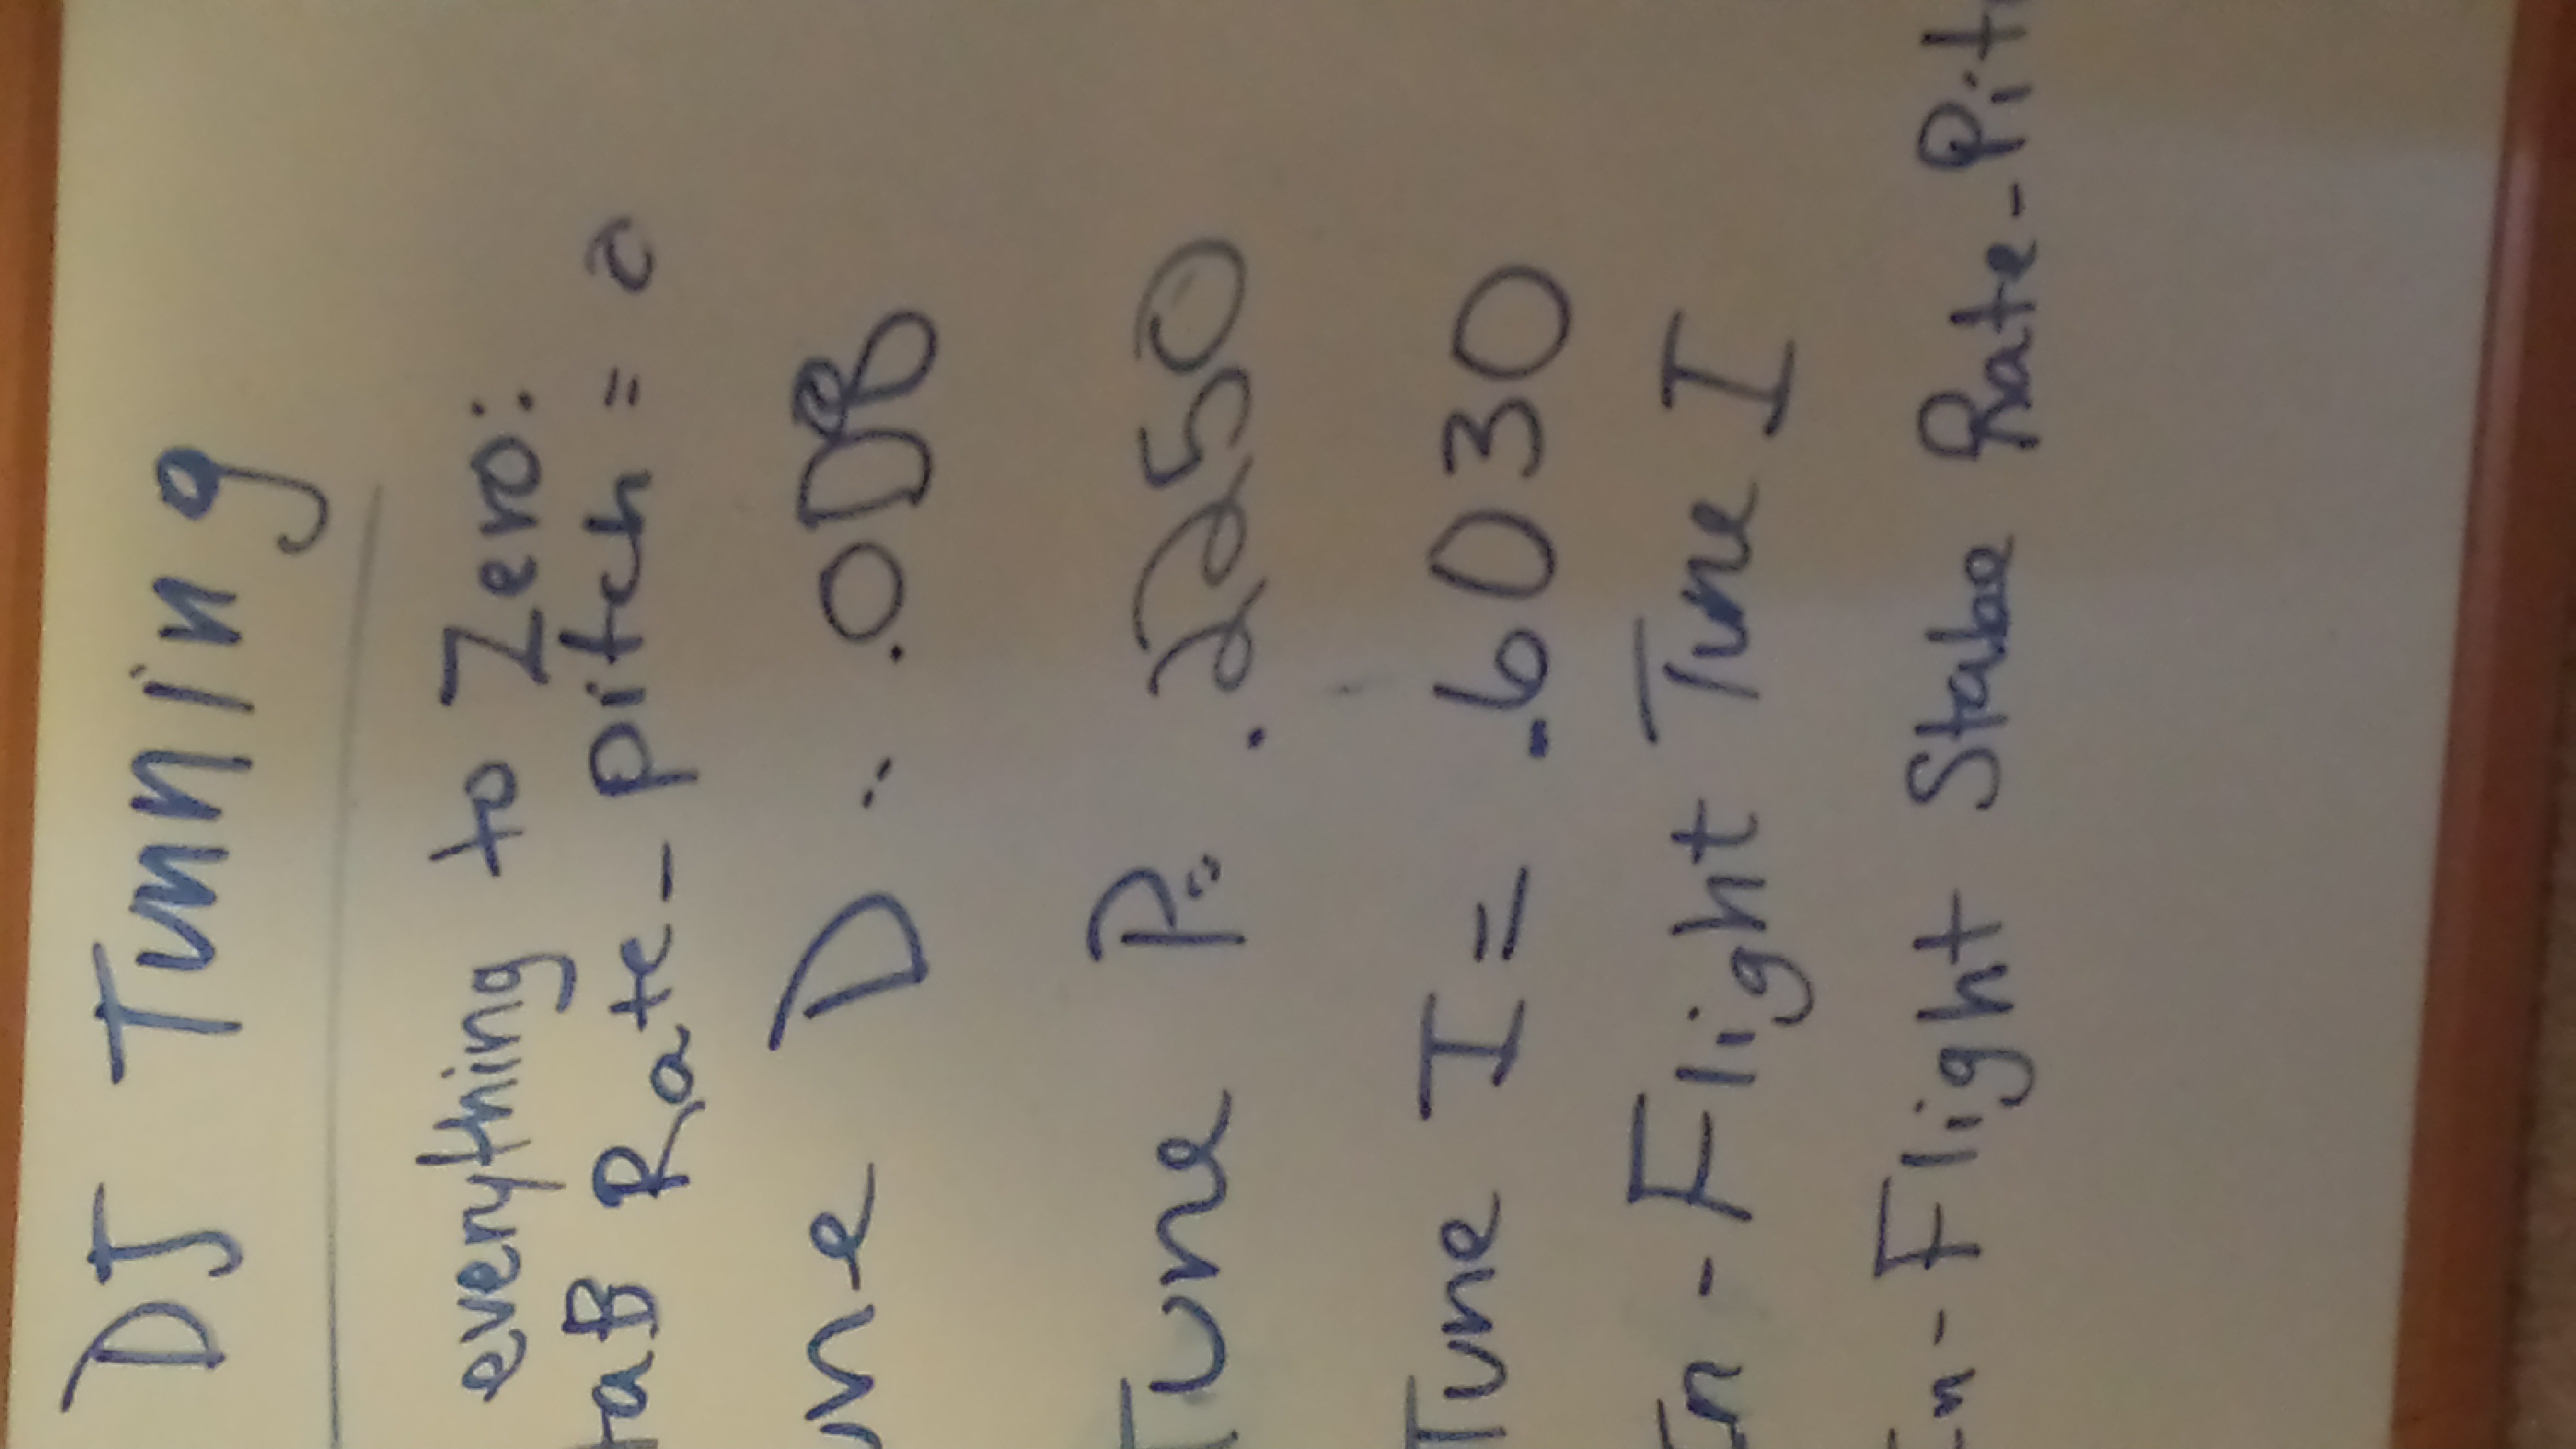 DJ Tunning
everything to Zero:
taB Rate_pitch = 0
une D = .008
Tune P= .2250
Tune I = .6030
In-Flight Tune I
In-Flight Stabe Rate_Pit